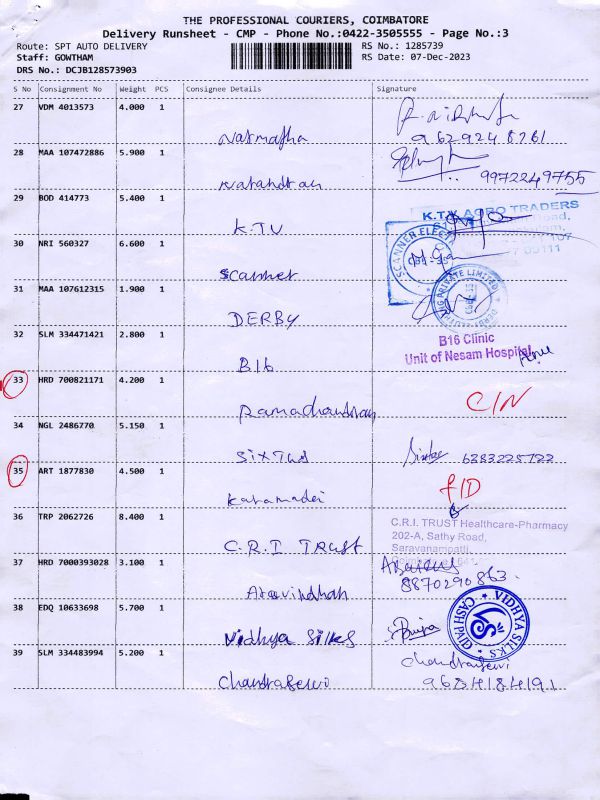 THE PROFESSIONAL COURIERS, COIMBATORE
Delivery Runsheet - CMP - Phone No.:0422-3505555 - Page No.:3
Route: SPT AUTO DELIVERY RS No.: 1285739
Staff: GOWTHAM RS Date: 07-Dec-2023
DRS No.: DCJB128573903
S No Consignment No Weight PCS Consignee Details Signature
27 VDM 4013573 4.000 1
28 MAA 107472886 5.900 1
9972249755
29 BOD 414773 5.400 1
K.T.V K.T.V AGRO TRADERS
30 NRI 560327 6.600 1 SCANNER ELECT
Scanner
31 MAA 107612315 1.900 1
DERBY
32 SLM 334471421 2.800 1 B16 Clinic
B16 Unit of Nesam Hospital
33 HRD 700821171 4.200 1
Ramachandran C/N
34 NGL 2486770 5.150 1
6383225722
35 ART 1877830 4.500 1
Karamadai
36 TRP 2062726 8.400 1 C.R.I. TRUST Healthcare-Pharmacy
202-A, Sathy Road,
C.R.I TRUST Saravanampatti,
37 HRD 7000393028 3.100 1
Aravindhan 8870290863
38 EDQ 10633698 5.700 1
Vidhya Silks VIDHYA SILKS CASH PAID
39 SLM 334483994 5.200 1